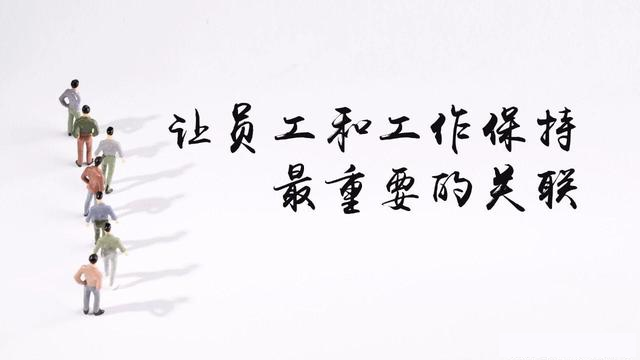 让员工和工作保持
最重要的关联